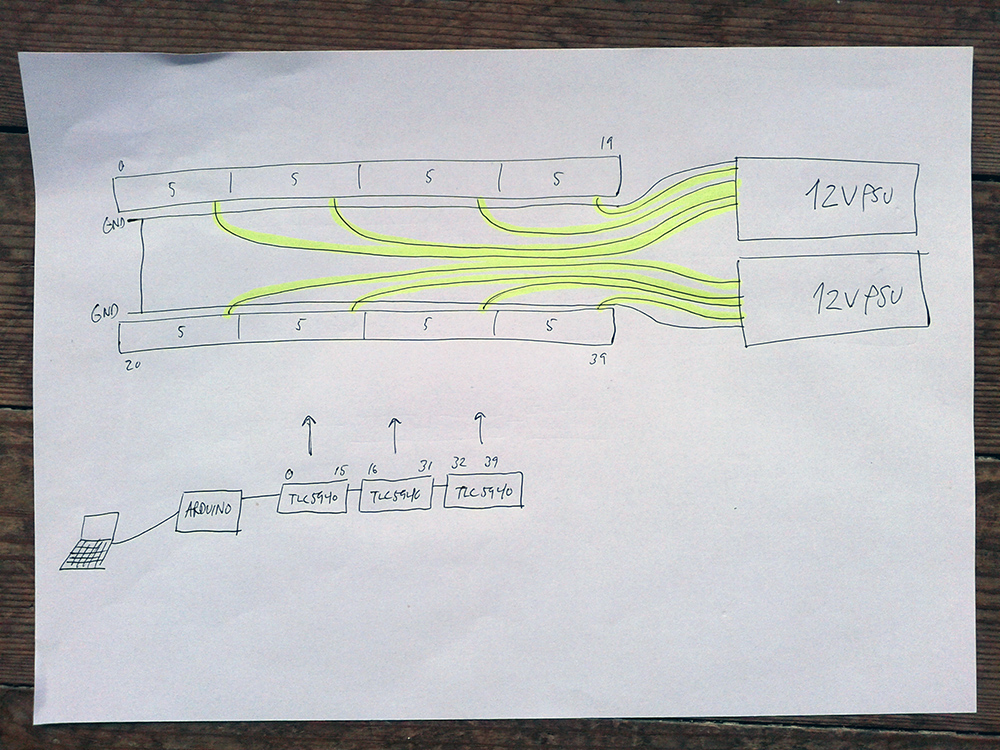 0 19
5 5 5 5
12V PSU
GND
12V PSU
GND
5 5 5 5
20 39
0 15 16 31 32 39
ARDUINO TLC5940 TLC5940 TLC5940